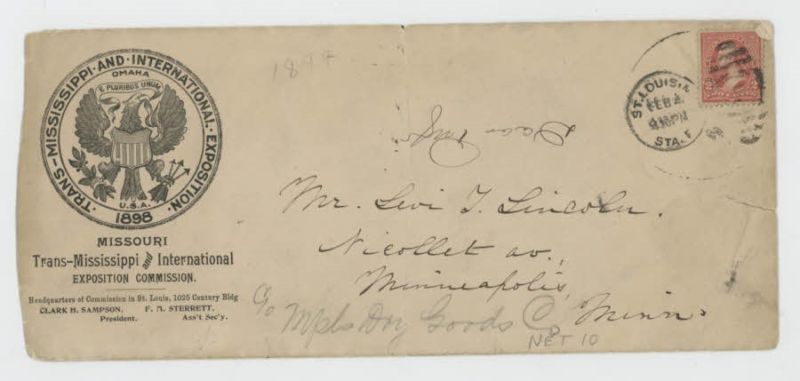 TRANS-MISSISSIPPI·AND·INTERNATIONAL·EXPOSITION·
OMAHA
E PLURIBUS UNUM
U.S.A.
1898
MISSOURI
Trans-Mississippi and International
EXPOSITION COMMISSION.
Headquarters of Commission in St. Louis, 1025 Century Bldg
CLARK H. SAMPSON, F. M. STERRETT,
President. Ass't Sec'y.
ST. LOUIS,
FEB
PM
STA. F
Mr. Levi T. Lincoln.
Nicollet av.,
Minneapolis,
Minn.
C/o Mpls Dry Goods Co
NET 10